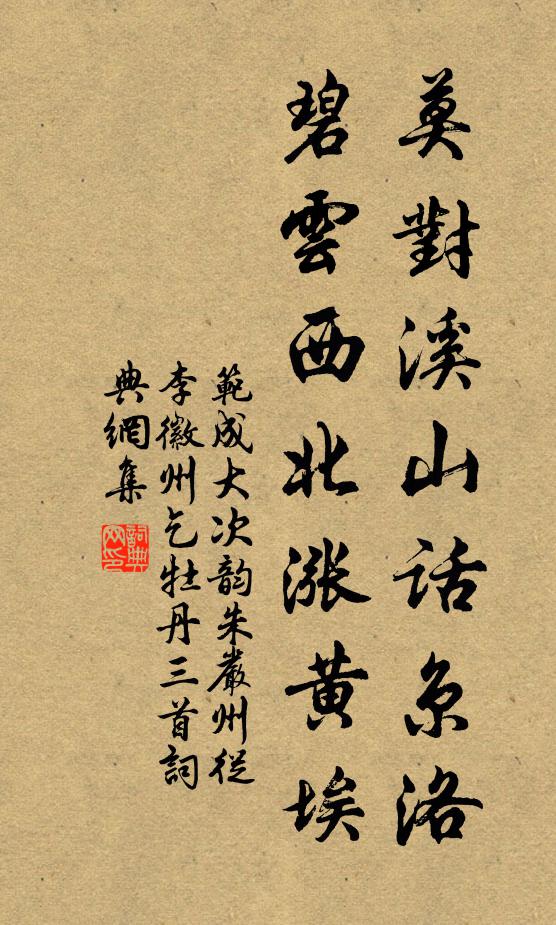 莫對溪山話京洛
碧雲西北漲黃埃
範成大次韵朱嚴州從
李徽州乞牡丹三首詞
典網集
詞典
网印